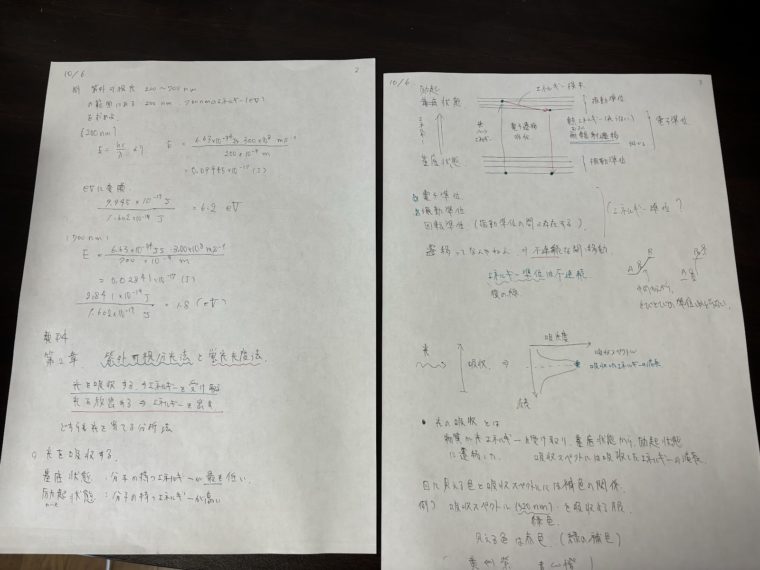 10/6
2
例) 紫外可視光 200〜700 nm
の範囲にある 200 nm 700nmのエネルギー(eV)
を求めよ
(200nm)
E = hc/λ = eV
E = 6.63×10⁻³⁴ Js 3.00×10⁸ ms⁻¹ / 200×10⁻⁹ m
= 0.09945×10⁻¹⁷ (J)
eVに変換
9.945×10⁻¹⁹ J / 1.602×10⁻¹⁹ J = 6.2 eV
(700nm)
E = 6.63×10⁻³⁴ Js 3.00×10⁸ ms⁻¹ / 700×10⁻⁹ m
= 0.02841×10⁻¹⁷ (J)
2.841×10⁻¹⁹ J / 1.602×10⁻¹⁹ J = 1.8 (eV)
第2章 紫外可視分光法と蛍光光度法
光を吸収する ⇒ エネルギーを受け取る
光を放出する ⇒ エネルギーを出す
どちらも光を当てる分析法
○ 光を吸収する。
基底状態 : 分子の持つエネルギーが最も低い。
励起状態 : 分子の持つエネルギーが高い
10/6
励起
状態
エネルギー
基底状態
光
エネルギー
電子遷移
吸収
無輻射遷移
振動準位
振動準位
電子準位
電子準位
振動準位
回転準位 (振動準位の間に存在する)
エネルギー準位?
遷移ってなんぞねん ⇒ 不連続な間の移動
エネルギー準位は不連続
A
B
A
B
光
吸収 ⇒
吸光度
吸収スペクトル
吸収したエネルギーの波長
波長
• 光の吸収とは
物質が光エネルギーを受け取り、基底状態から励起状態
に遷移した。 吸収スペクトルは吸収したエネルギーの波長
目に見える色と吸収スペクトルには補色の関係。
例) 吸収スペクトル (520nm) を吸収する服
緑色
見える色は赤色 (緑の補色)